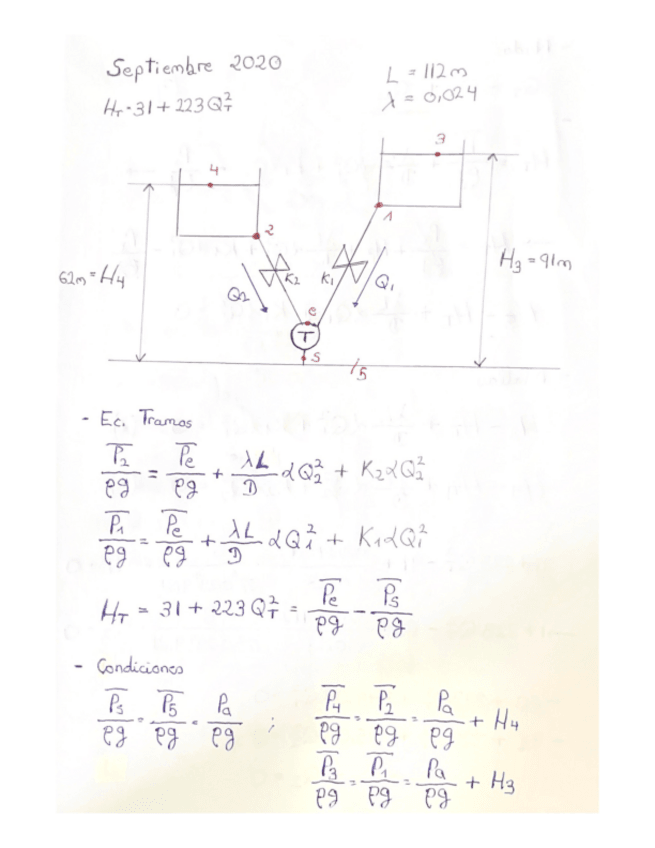 Septiembre 2020
L = 112m
H_T = 31 + 223 Q_T^2
λ = 0,024
3
4
1
2
62m = H4
H3 = 91m
K2
K1
Q2
Q1
e
T
S
5
- Ec. Tramos
P2/ρg = Pe/ρg + λL/D αQ2^2 + K2αQ2^2
P1/ρg = Pe/ρg + λL/D αQ1^2 + K1αQ1^2
H_T = 31 + 223 Q_T^2 = Pe/ρg - Ps/ρg
- Condiciones
Ps/ρg = P5/ρg = Pa/ρg ; P4/ρg = P2/ρg = Pa/ρg + H4
P3/ρg = P1/ρg = Pa/ρg + H3